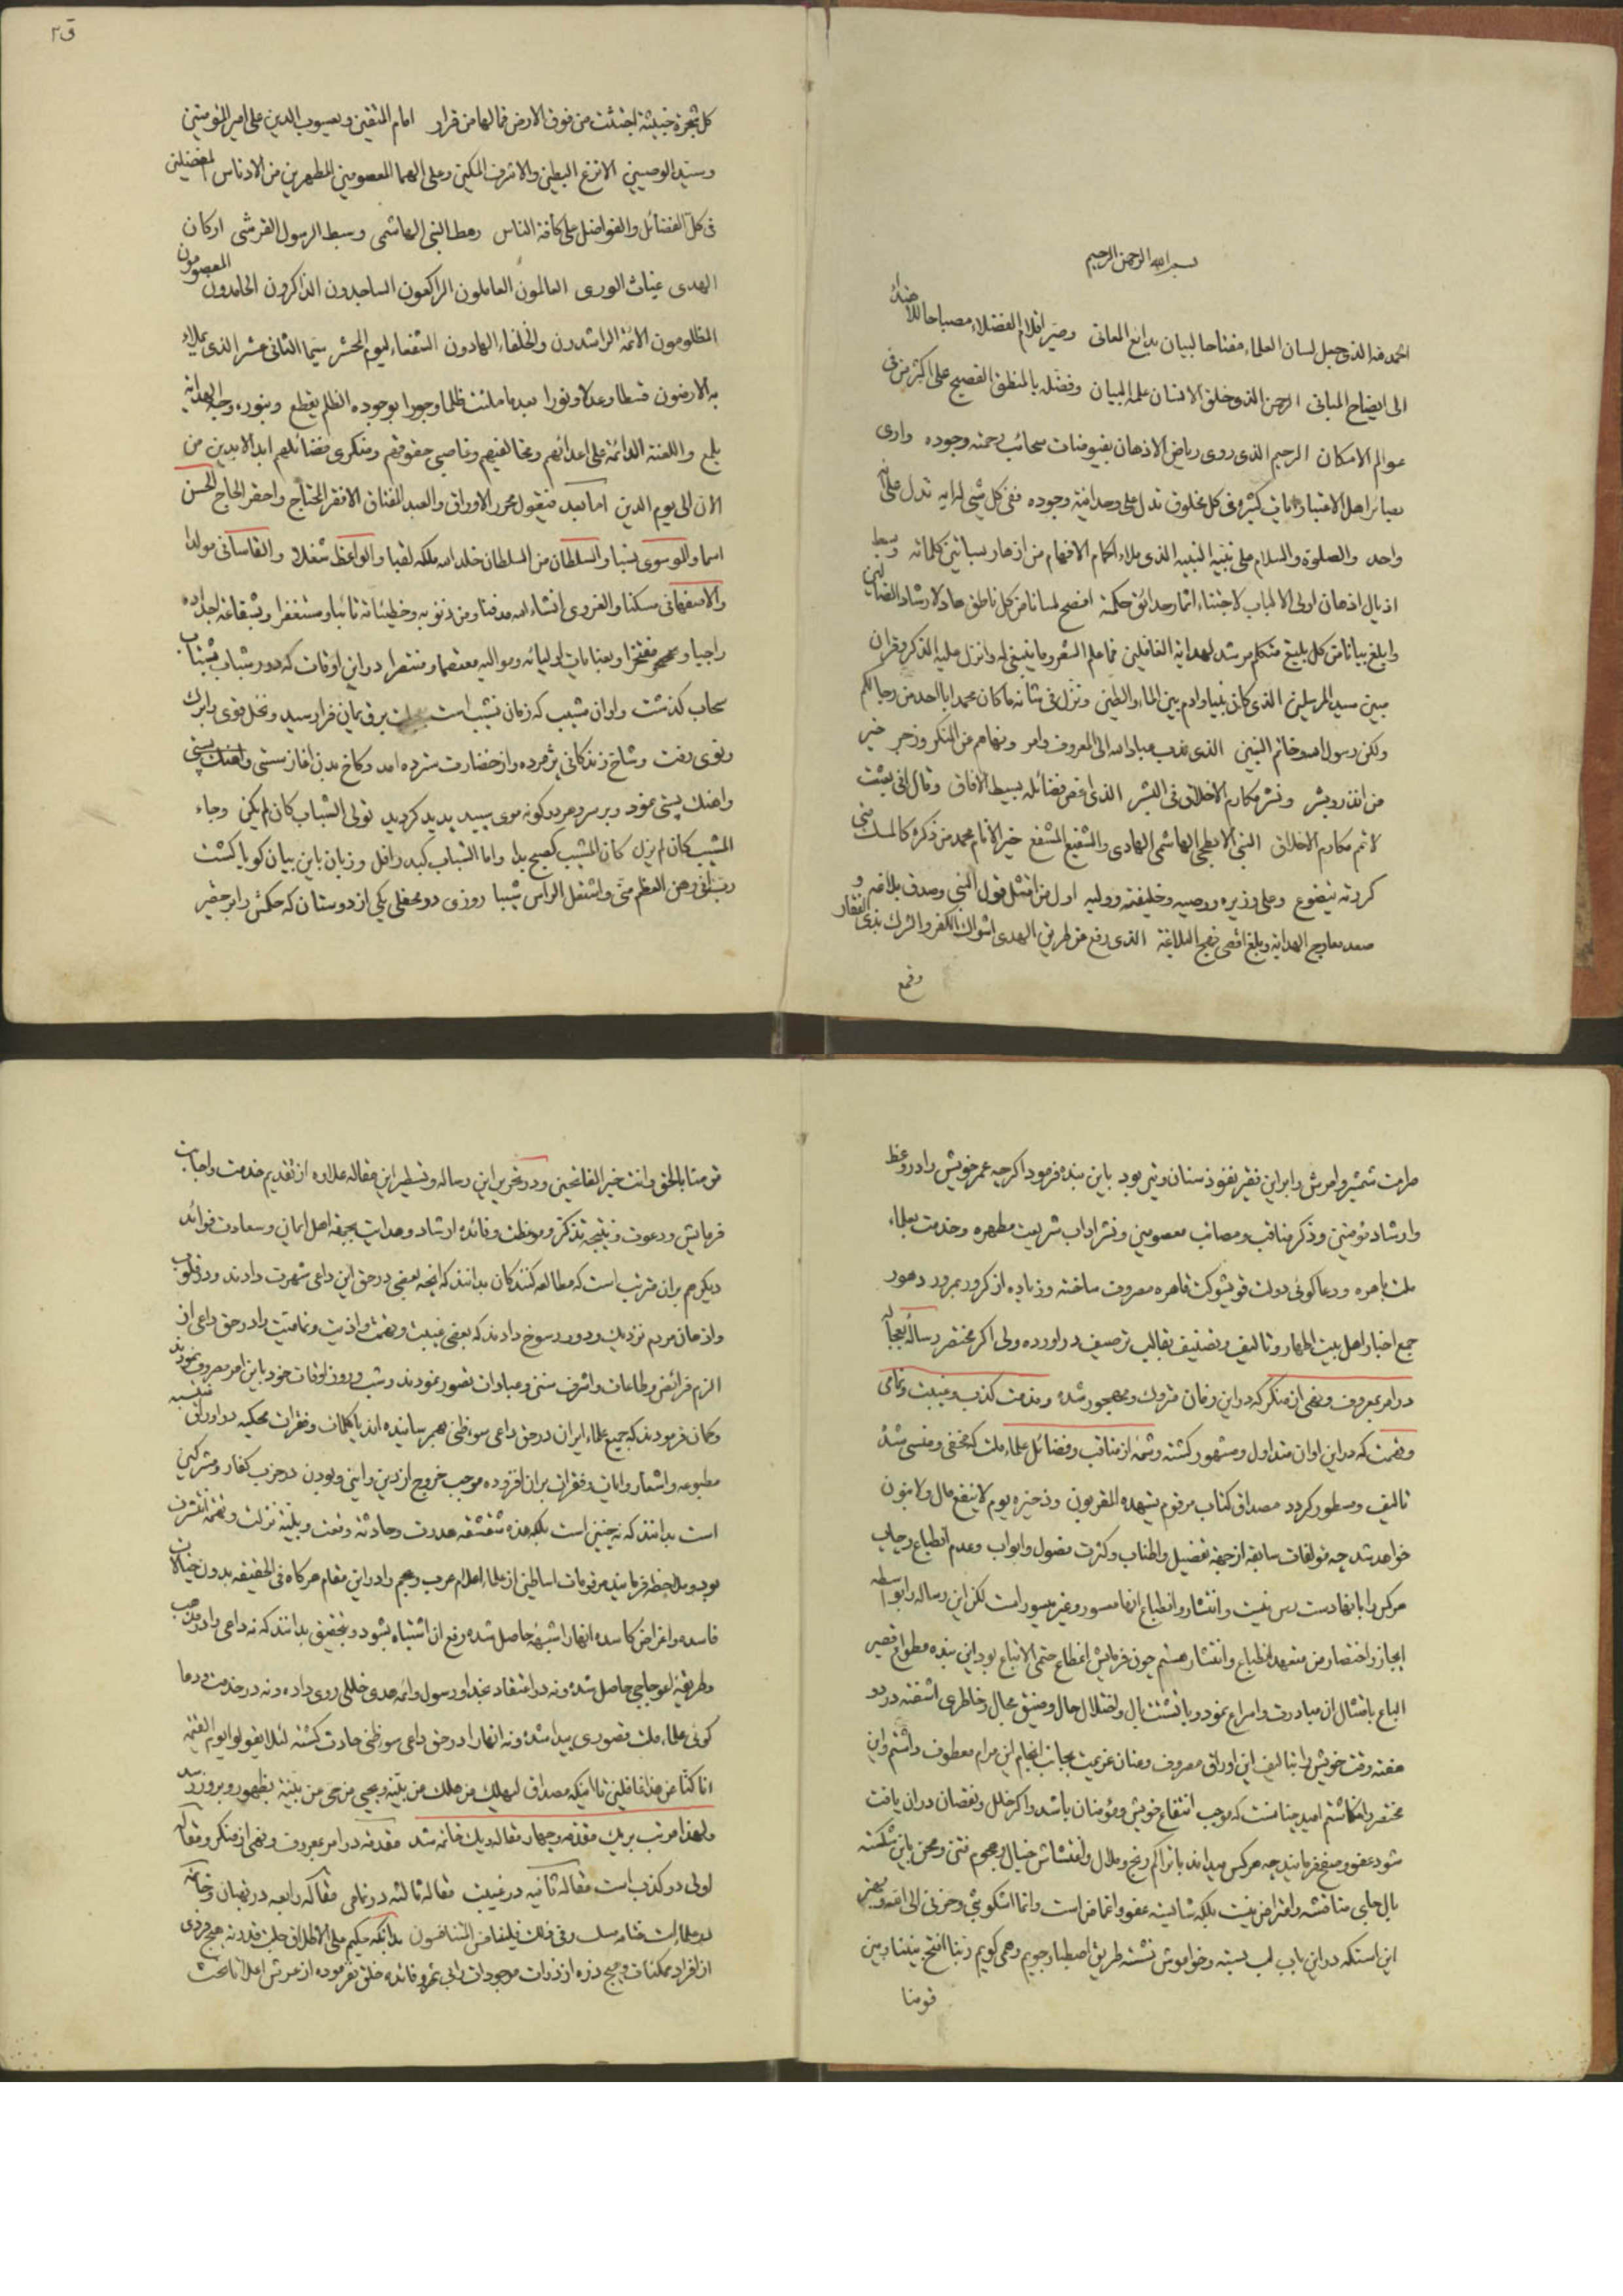 بسم الله الرحمن الرحیم
الحمد لله الذی جعل لسان العلماء مفتاحا لبیان بدایع المعانی وصیر اقلام الفضلاء مصباحا للاهتداء
الی ایضاح المبانی الرحمن الذی خلق الانسان علمه البیان وفضله بالمنطق الفصیح علی اکثر من فی
عوالم الامکان الرحیم الذی روی ریاض الاذهان بفیوضات سحائب رحمته وجوده واری
بصائر اهل الاعتبار ایات کثیرة فی کل مخلوق تدل علی وحدانیة وجوده ففی کل شیٔ له ایة تدل علی انه
واحد والصلوة والسلام علی نبیه النبیه الذی ملاء اکمام الافهام من ازهار بساتین کلماته وبسط
اذیال اذهان اولی الالباب لاجتناء اثمار حدائق حکمه افصح لسانا من کل ناطق هاد لارشاد الضالین
وابلغ بیانا من کل بلیغ متکلم مرشد لهدایة الغافلین فما علم الشعر وما ینبغی له وانزل علیه الذکر وقران
مبین سید المرسلین الذی کان نبیا وادم بین الماء والطین ونزل فی شانه ما کان محمد ابا احد من رجالکم
ولکن رسول الله وخاتم النبیین الذی ندب عباد الله الی المعروف وامر ونهاهم عن المنکر وزجر خیر
من انذر وبشر ونشر مکارم الاخلاق فی البشر الذی فضائله بسیط الافاق وقال انی بعثت
لاتمم مکارم الاخلاق النبی الابطحی الهاشمی الهادی والشفیع المشفع خیر الانام محمد من ذکره کالمسک متی
کررته یتضوع وعلی وزیره ووصیه وخلیفته وولیه اول من امتثل قول النبی وصدق بلاغه و
صعد معارج الهدایة وبلغ اقصی نهج البلاغة الذی رفع عن طریق الهدی اشواك الکفر والشرك بذی الفقار
وقمع
ق۲
کل شجرة خبیثة اجتثت من فوق الارض فما لها من قرار امام المتقین ویعسوب الدین علی امیر المؤمنین
وسید الوصیین الانزع البطین والاشرف المکین وعلی الهما المعصومین المطهرین من الادناس المفضلین
فی کل الفضائل والفواضل علی کافة الناس رهط النبی الهاشمی وسبط الرسول القرشی ارکان
الهدی غیاث الوری العالمون العاملون الراکعون الساجدون الذاکرون الحامدون المعصومون
المظلومون الائمة الراشدون والخلفاء الهادون الشفعاء لیوم الحشر سیما الثانی عشر الذی یملاء
به الارضون قسطا وعدلا ونورا بعد ما ملئت ظلما وجورا بوجوده الظلم یقطع وبنوره وجه الهدایة
یلمع واللعنة الدائمة علی اعدائهم ومخالفیهم وغاصبی حقوقهم ومنکری فضائلهم ابد الابدین من
الان الی یوم الدین اما بعد فیقول محرر الاوراق والعبد الفتاق الافقر المحتاج واحقر الحاج الحسن
اسما والموسوی نسبا والسلطان من السلطان خلد الله ملکه لقبا والواعظ شغلا والقاسانی مولدا
والاصفهانی مسکنا والغروی انشاء الله مدفنا ومن ذنوبه وخطیئاته تائبا ومستغفرا وبشفاعة اجداده
راجیا و مفتخرا وبعنایات اولیائه وموالیه معتصما ومنتصرا در این اوقات که دور شباب بشتاب
سحاب کذشت واوان مشیب که زمان نشیب است بعجلت برق یمان فرا رسید ونخل قوی را برك
ونوی رفت وشاخ زندکانی پژمرده واز خضارت سترده امد وکاخ بدن اغاز سستی
واهنك پستی نمود وبر سر هر دو کونه موی سپید پدید کردید تولی الشباب کان لم یکن وجاء
المشیب کان لم یزل کان المشیب کصبح بدا واما الشباب کبدر افل وزبان باین بیان کویا کشت
رب انی وهن العظم منی واشتعل الراس شیبا روزی در محفلی یکی از دوستان که حکمش را بر حقیر
صارمت شمشیر وامرش را بر این فقیر نفوذ سنان وتیر بود باین بنده فرمود اکرچه عمر خویش را در وعظ
وارشاد مؤمنین وذکر مناقب ومصائب معصومین ونشر اداب شریعت مطهره وخدمت بعلماء
ملت باهره ودعاکوئی دولت قویشوکت قاهره معروف ساخته وزیاده از کرور بمرور دهور
جمع اخبار اهل بیت اطهار وتالیف وتصنیف بقالب ترصیف در اورده ولی اکر مختصر رسالهٔ
در امر بمعروف ونهی از منکر که در این زمان متروك ومهجور شده ومذمت کذب وغیبت ونمامی
وتهمت که در این اوان متداول ومشهور کشته وشمهٔ از مناقب وفضائل علماء ملت که مخفی ومنسی شده
تالیف ومسطور کردد مصداق کتاب مرقوم یشهده المقربون وذخیره یوم لاینفع مال ولابنون
خواهد شد چه مؤلفات سابقه از جهة تفصیل واطناب وکثرت فصول وابواب وعدم انطباع
هر کس را بانها دست رس نیست وانتشار وانطباع انها میسور وغیر میسور است لکن این رساله را بواسطه
ایجاز واختصار من متعهد انطباع وانتشار هستم چون فرمایش مطاع حتمی الاتباع بود این بنده
بامتثال ان مبادرت واسراع نمود وبا تشتت بال واختلال حال وضیق مجال وخاطری اشفته در دو
هفته وقت خویش را بتالیف این اوراق مصروف وعنان عزیمت بجانب انجام این مرام معطوف داشتم واین
مختصر را نکاشتم امید چنانست که موجب انتفاع خویش ومؤمنان باشد واکر خلل ونقصان در ان یافت
شود عفو وصفح فرمایند چه هر کس میداند با تراکم رنج وملال واغتشاش خیال وهجوم فتن ومحن باین شکسته
بال جای مناقشه واعتراض نیست بلکه شایسته عفو واغماض است وانما اشکو بثی وحزنی الی الله وبهتر
این استکه در این باب لب بسته وخواموش نشسته طریق اصطبار جویم وهمی کویم ربنا افتح بیننا وبین
قومنا
قومنا بالحق وانت خیر الفاتحین ودر تحریر این رساله وتسطیر این مقاله علاوه از تقدیم خدمت واجابت
فرمایش ودعوت ونتیجه تذکر وموعظت وفائده ارشاد وهدایت بجهة اهل ایمان وسعادت فوائد
دیکر هم بر ان مترتب است که مطالعه کنندکان بدانند که انچه بعضی در حق این داعی شهرت دادند ودر قلوب
واذهان مردم نزدیك ودور رسوخ دادند که بعضی غیبت وتهمت واذیت ونمامیت را در حق داعی از
الزم فرائض وطاعات واشرف سنن وعبادات تصور نمودند وشب وروز اوقات خود باین امر مصروف نمودند
وکمان فرمودند که جمیع علماء ایران در حق داعی سوءظنی بهم رسانیده اند یا کلمات وفقرات محکیه در اوراق
مطبوعه واشعار وابیات وفقرات بران افزوده موجب خروج از دین وائین وبودن در حزب کفار ومشرکین
است بدانند که نه چنین است بلکه هذه شقشقة هدرت وحادثة وقعت وبلیة نزلت وتهمة انتشرت
بود وملاحظه فرمایند مرقومات اساطین از علماء اعلام عرب وعجم را در این مقام هرکاه فی الحقیقه بدون خیالات
فاسده واغراض کاسده انها را شبهه حاصل شده رفع ان اشتباه بشود وبتحقیق بدانند که نه داعی را در مذهب
وطریقه اعوجاجی حاصل شده ونه در اعتقاد بخدا ورسول وائمه هدی خللی روی داده ونه در خدمت ودعا
کوئی علماء ملت قصوری پیدا شده ونه انها را در حق داعی سوءظنی حادث کشته لئلا یقولوا یوم القیمة
انا کنا عن هذا غافلین تا اینکه مصداق لیهلك من هلك عن بینة ویحیی من حی عن بینة بظهور وبروز رسد
ولهذا مرتب بر یك مقدمه وچهار مقاله ویك خاتمه شد مقدمه در امر بمعروف ونهی از منکر ومقاله
اولی در کذب است مقاله ثانیه در غیبت مقاله ثالثه در نمامی مقاله رابعه در بهتان وخاتمه
در علماء است ختامه مسك وفی ذلك فلیتنافس المتنافسون بدانکه حکیم علی الاطلاق جلت قدرته هیچ فردی
از افراد ممکنات وهیچ ذره از ذرات موجودات را بی ثمر وفائده خلق نفرموده از عرش اعلا تا تحت